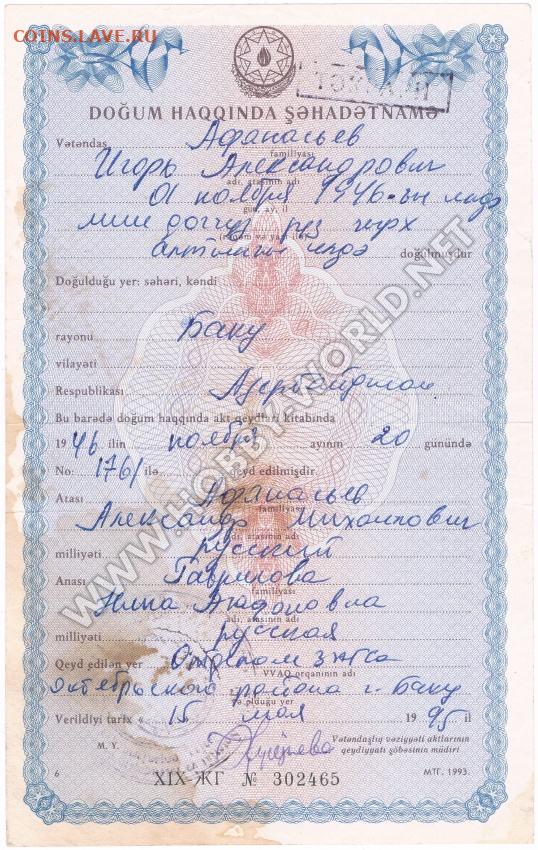 COINS.LAVE.RU
TƏKRAR
DOĞUM HAQQINDA ŞƏHADƏTNAMƏ
Vətəndaş Афанасьев
familiyası
Игорь Александрович
adı, atasının adı
01 ноября 1946-
gün, ay, il
мин доггуз йуз
алтынчы илдə doğulmuşdur
Doğulduğu yer: şəhəri, kəndi
rayonu Баку
vilayəti
Respublikası Азербайджан
Bu barədə doğum haqqında akt qeydləri kitabında
1946 ilin ноября ayının 20 günündə
No: 1761 ilə qeyd edilmişdir.
Atası Афанасьев
familiyası
Александр Михайлович
adı, atasının adı
milliyəti русский
Anası Гаврилова
familiyası
Нина
adı, atasının adı
milliyəti русская
Qeyd edilən yer Отделом загса
VVAQ orqanının adı
Октябрьского района г. Баку
və olduğu yer
Verildiyi tarix «15» мая 1995 il
M. Y.
Vətəndaşlıq vəziyyəti aktlarının
qeydiyyatı şöbəsinin müdiri
6 XIX-ЖГ № 302465 МТГ. 1993.
WWW.HOBBYWORLD.NET